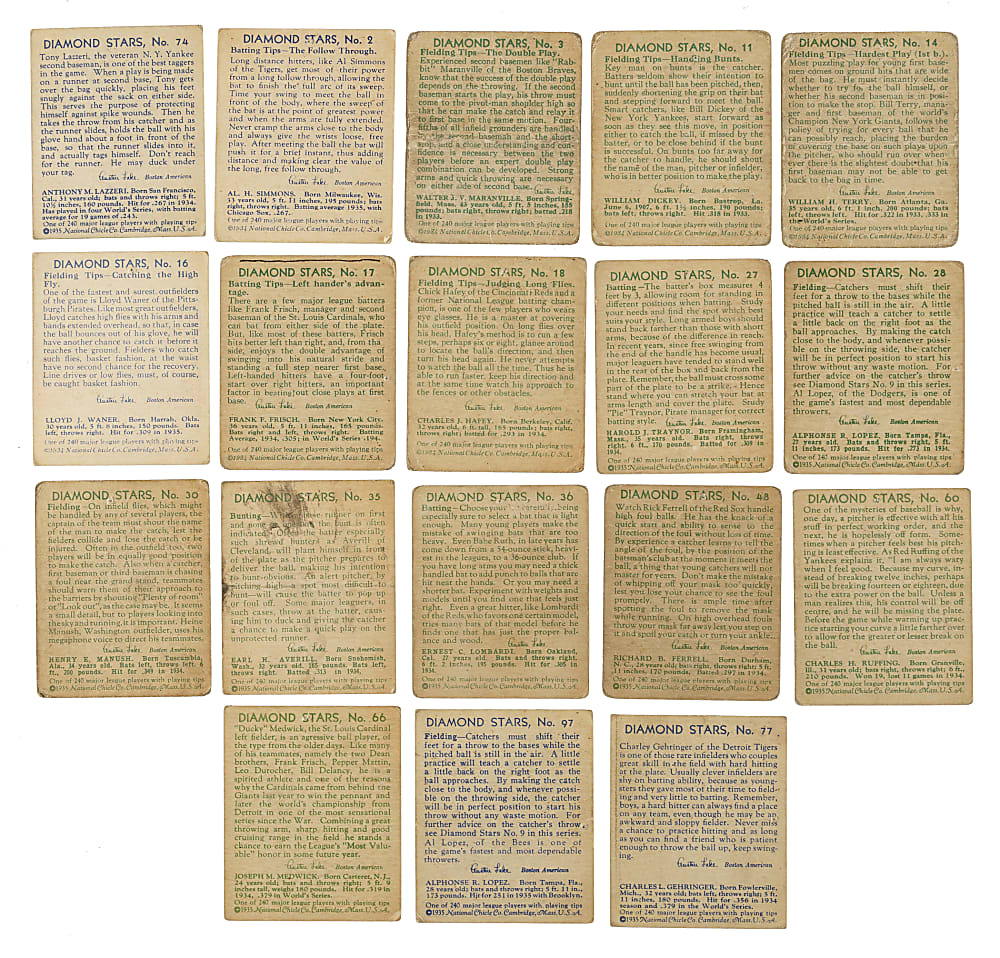 DIAMOND STARS, No. 74
Tony Lazzeri, the veteran N. Y. Yankee
second baseman, is one of the best taggers
in the game. When a play is being made
on a runner at second base, Tony gets
over the bag quickly, placing his feet
snugly against the sack on either side.
This serves the purpose of protecting
himself against spike wounds. Then he
takes the throw from his catcher and as
the runner slides, holds the ball with his
glove hand about a foot in front of the
base, so that the runner slides into it,
and actually tags himself. Don't reach
for the runner. He may duck under
your tag.
Austen Lake. Boston American
ANTHONY M. LAZZERI. Born San Francisco,
Cal., 31 years old; bats and throws right; 5 ft.
10½ inches, 160 pounds. Hit for .267 in 1934.
Has played in four World's Series, with batting
average for 19 games of .243.
One of 240 major league players with playing tips
©1935 National Chicle Co. Cambridge, Mass. U.S.A.
DIAMOND STARS, No. 2
Batting Tips—The Follow Through.
Long distance hitters, like Al Simmons
of the Tigers, get most of their power
from a long follow through, allowing the
bat to finish the full arc of its sweep.
Time your swing to meet the ball in
front of the body, where the sweep of
the bat is at the point of greatest power
and when the arms are fully extended.
Never cramp the arms close to the body
and always give the wrists loose, free
play. After meeting the ball the bat will
push it for a brief instant, thus adding
distance and making clear the value of
the long, free follow through.
Austen Lake. Boston American
AL. H. SIMMONS. Born Milwaukee, Wis.,
33 years old, 5 ft. 11 inches, 195 pounds; bats
right, throws right. Batting average 1935, with
Chicago Sox, .267.
One of 240 major league players with playing tips
©1934 National Chicle Co. Cambridge, Mass. U.S.A.
DIAMOND STARS, No. 3
Fielding Tips—The Double Play.
Experienced second basemen like "Rab-
bit" Maranville of the Boston Braves,
know that the success of the double play
depends on the throwing. If the second
baseman starts the play, his throw must
come to the pivot-man shoulder high so
that he can make the catch and relay it
to first base in the same motion. Four-
fifths of all infield grounders are handled
by the second baseman and the short-
stop, and a close understanding and con-
fidence is necessary between the two
players before an expert double play
combination can be developed. Strong
arms and quick throwing are necessary
on either side of second base. Austen Lake.
WALTER J. V. MARANVILLE. Born Spring-
field, Mass. 43 years old, 5 ft. 5 inches, 155
pounds; bats right, throws right; batted .218
in 1933.
One of 240 major league players with playing tips
©1934 National Chicle Co. Cambridge, Mass. U.S.A.
DIAMOND STARS, No. 11
Fielding Tips—Handling Bunts.
Key man on bunts is the catcher.
Batters seldom show their intention to
bunt until the ball has been pitched, then,
suddenly shortening the grip on their bat
and stepping forward to meet the ball.
Smart catchers, like Bill Dickey of the
New York Yankees, start forward as
soon as they see this move, in position
either to catch the ball, if missed by the
batter, or to be close behind if the bunt
is successful. On bunts too far away for
the catcher to handle, he should shout
the name of the man, pitcher or infielder,
who is in better position to make the play.
Austen Lake. Boston American
WILLIAM DICKEY. Born Bastrop, La.
June 6, 1907, 6 ft. 1½ inches, 190 pounds;
bats left, throws right. Hit for .318 in 1933.
One of 240 major league players with playing tips
©1934 National Chicle Co. Cambridge, Mass. U.S.A.
DIAMOND STARS, No. 14
Fielding Tips—Hardest Play (1st b.).
Most puzzling play for young first base-
men comes on ground hits that are wide
of the bag. He must instantly decide
whether to try for the ball himself, or
whether his second baseman is in posi-
tion to make the stop. Bill Terry, mana-
ger and first baseman of the world's
Champion New York Giants, follows the
policy of trying for every ball that he
can possibly reach, placing the burden
of covering the base on such plays upon
the pitcher, who should run over when-
ever there is the slightest doubt that his
first baseman may not be able to get
back to the bag in time.
Austen Lake. Boston American
WILLIAM H. TERRY. Born Atlanta, Ga.
35 years old, 6 ft. 1 inch, 200 pounds; bats
left, throws left. Hit for .322 in 1933, .333 in
the World's Series.
One of 240 major league players with playing tips
©1934 National Chicle Co. Cambridge, Mass. U.S.A.
DIAMOND STARS, No. 16
Fielding Tips—Catching the High
Fly.
One of the fastest and surest outfielders
of the game is Lloyd Waner of the Pitts-
burgh Pirates. Like most great outfielders,
Lloyd catches high flies with his arms and
hands extended overhead, so that, in case
the ball bounces out of his glove, he will
have another chance to catch it before it
reaches the ground. Fielders who catch
such flies, basket fashion, at the waist
have no second chance for the recovery.
Line drives or low flies, must, of course,
be caught basket fashion.
Austen Lake. Boston American
LLOYD J. WANER. Born Harrah, Okla.
30 years old, 5 ft. 8 inches, 150 pounds. Bats
left, throws right. Hit for .309 in 1935.
One of 240 major league players with playing tips
©1934 National Chicle Co. Cambridge, Mass. U.S.A.
DIAMOND STARS, No. 17
Batting Tips—Left hander's advan-
tage.
There are few major league batters
like Frank Frisch, manager and second
baseman of the St. Louis Cardinals, who
can bat from either side of the plate.
But, like most of these batters, Frisch
hits better left than right, and, from that
side, enjoys the double advantage of
swinging into his natural stride and
standing a full step nearer first base.
Left-handed hitters have a four-foot
start over right hitters, an important
factor in beating out close plays at first
base. Austen Lake. Boston American
FRANK F. FRISCH. Born New York City.
36 years old, 5 ft. 11 inches, 165 pounds.
Bats right and left, throws right. Batting
Average, 1934, .305; in World's Series .194.
One of 240 major league players with playing tips
©1934 National Chicle Co. Cambridge, Mass. U.S.A.
DIAMOND STARS, No. 18
Fielding Tips—Judging Long Flies.
Chick Hafey of the Cincinnati Reds and a
former National League batting cham-
pion, is one of the few players who wears
eye glasses. He is a master at covering
his outfield position. On long flies over
his head, Hafey's method is to run a few
steps, perhaps six or eight, glance around
to locate the ball's direction, and then
turn his head again. He never attempts
to watch the ball all the time. Thus he is
able to run faster, keep his direction and
at the same time watch his approach to
the fences or other obstacles.
Austen Lake. Boston American
CHARLES J. HAFEY. Born Berkeley, Calif.
32 years old, 6 ft. tall, 185 pounds; bats right,
throws right; batted for .293 in 1934.
One of 240 major league players with playing tips
©1934 National Chicle Co. Cambridge, Mass. U.S.A.
DIAMOND STARS, No. 27
Batting—The batter's box measures 4
feet by 3, allowing room for standing in
different positions when batting. Study
your needs and find the spot which best
suits your style. Long armed boys should
stand back farther than those with short
arms, because of the difference in reach.
In recent years, since free swinging from
the end of the handle has become usual,
major leaguers have tended to stand well
in the rear of the box and back from the
plate. Remember, the ball must cross some
part of the plate to be a strike. Hence
stand where you can stretch your bat at
arms length and cover the plate. Study
"Pie" Traynor, Pirate manager for correct
batting style. Austen Lake. Boston American
HAROLD J. TRAYNOR. Born Framingham,
Mass., 35 years old. Bats right, throws
right; 6 ft., 170 pounds. Batted for .309 in
1934.
One of 240 major league players with playing tips
©1935 National Chicle Co. Cambridge, Mass. U.S.A.
DIAMOND STARS, No. 28
Fielding—Catchers must shift their
feet for a throw to the bases while the
pitched ball is still in the air. A little
practice will teach a catcher to settle
a little back on the right foot as the
ball approaches. By making the catch
close to the body, and whenever possi-
ble on the throwing side, the catcher
will be in perfect position to start his
throw without any waste motion. For
further advice on the catcher's throw
see Diamond Stars No. 9 in this series.
Al Lopez, of the Dodgers, is one of
the game's fastest and most dependable
throwers.
Austen Lake. Boston American
ALPHONSE R. LOPEZ. Born Tampa, Fla.,
27 years old. Bats and throws right, 5 ft.
11 inches, 173 pounds. Hit for .273 in 1934.
One of 240 major league players with playing tips
©1935 National Chicle Co. Cambridge, Mass. U.S.A.
DIAMOND STARS, No. 30
Fielding—On infield flies, which might
be handled by any of several players, the
captain of the team must shout the name
of the man to make the catch, lest the
fielders collide and lose the catch or be
injured. Often in the outfield too, two
players will be in equally good position
to make the catch. Also when a catcher,
first baseman or third baseman is chasing
a foul near the grand stand, teammates
should warn them of their approach to
the barriers by shouting "Plenty of room"
or "Look out", as the case may be. It seems
a small detail, but to players looking into
the sky and running, it is important. Heinie
Manush, Washington outfielder, uses his
megaphone voice to direct his teammates.
Austen Lake. Boston American
HENRY E. MANUSH. Born Tuscumbia,
Ala., 34 years old. Bats left, throws left, 6
ft., 200 pounds. Hit for .349 in 1934.
One of 240 major league players with playing tips
©1935 National Chicle Co. Cambridge, Mass. U.S.A.
DIAMOND STARS, No. 35
Bunting—With a runner on first
and none the bunt is often
indicated. Often the batter especially
such shrewd hitters as Averill of
Cleveland, will plant himself in front
of the plate as the pitcher prepares to
deliver the ball, making his intention
to bunt obvious. An alert pitcher, by
pitching high—a spot most difficult to
bunt—will cause the batter to pop up
or foul off. Some major leaguers, in
such cases, throw at the batter, caus-
ing him to duck and giving the catcher
a chance to make a quick play on the
unprotected runner.
Austen Lake. Boston American
EARL H. AVERILL. Born Snohomish,
Wash., 32 years old, 185 pounds. Bats left,
throws right. Batted .313 in 1934.
One of 240 major league players with playing tips
©1935 National Chicle Co. Cambridge, Mass. U.S.A.
DIAMOND STARS, No. 36
Batting—Choose your bat carefully, being
especially sure to select a bat that is light
enough. Many young players make the
mistake of swinging bats that are too
heavy. Even Babe Ruth, in late years has
come down from a 54-ounce stick, heavi-
est in the leagues, to a 36-ounce club. If
you have long arms you may need a thick
handled bat to add punch to balls that are
hit near the hands. Or you may need a
shorter bat. Experiment with weights and
models until you find one that feels just
right. Even a great hitter, like Lombardi
of the Reds, who favors one certain model,
tries many bars of that model before he
finds one that has just the proper bal-
ance and wood. Austen Lake. Boston American
ERNEST C. LOMBARDI. Born Oakland,
Cal. 27 years old. Bats and throws right,
6 ft. 2 inches, 195 pounds. Hit for .305 in
1934.
One of 240 major league players with playing tips
©1935 National Chicle Co. Cambridge, Mass. U.S.A.
DIAMOND STARS, No. 48
Watch Rick Ferrell of the Red Sox handle
high foul balls. He has the knack of a
quick start and ability to sense the
direction of the foul without loss of time.
By experience a catcher learns to tell the
angle of the foul, by the position of the
batsman's club at the moment it meets the
ball, a thing that young catchers will not
master for years. Don't make the mistake
of whipping off your mask too quickly,
lest you lose your chance to see the foul
promptly. There is ample time after
spotting the foul to remove the mask
while running. On high overhead fouls
throw your mask far away lest you step on
it and spoil your catch or turn your ankle.
Austen Lake. Boston American
RICHARD B. FERRELL. Born Durham,
N. C., 28 years old; bats right, throws right; 5 ft.
11 inches, 170 pounds, Batted .297 in 1934.
One of 240 major league players with playing tips
©1935 National Chicle Co. Cambridge, Mass. U.S.A.
DIAMOND STARS, No. 60
One of the mysteries of baseball is why,
one day, a pitcher is effective with all his
stuff in perfect working order, and the
next, he is hopelessly off form. Some-
times when a pitcher feels best his pitch-
ing is least effective. As Red Ruffing of the
Yankees explains it, "I am always wary
when I feel good. Because my curve, in-
stead of breaking twelve inches, perhaps
will be breaking fourteen or eighteen, due
to the extra power on the ball. Unless a
man realizes this, his control will be off
centre, and he will be missing the plate.
Before the game while warming up prac-
tice starting your curve a little farther over
to allow for the greater or lesser break
of the ball.
Austen Lake. Boston American
CHARLES H. RUFFING. Born Granville,
Ill., 31 years old. Bats right, throws right, 6 ft.,
210 pounds. Won 19, lost 11 games in 1934.
One of 240 major league players with playing tips
©1935 National Chicle Co. Cambridge, Mass. U.S.A.
DIAMOND STARS, No. 66
"Ducky" Medwick, the St. Louis Cardinal
left fielder, is an agressive ball player, of
the type from the older days. Like many
of his teammates, namely the two Dean
brothers, Frank Frisch, Pepper Mattin,
Leo Durocher, Bill Delancy, he is a
spirited athlete and one of the reasons
why the Cardinals came from behind the
Giants last year to win the pennant and
later the world's championship from
Detroit in one of the most sensational
series since the War. Combining a great
throwing arm, sharp hitting and good
cruising range in the field he stands a
chance to earn the League's "Most Valu-
able" honor in some future year.
Austen Lake. Boston American
JOSEPH M. MEDWICK. Born Carteret, N. J.,
24 years old; bats and throws right; 5 ft. 9
inches tall, weighs 180 pounds. Hit for .319 in
1934, .379 in World's Series.
One of 240 major league players with playing tips
©1935 National Chicle Co. Cambridge, Mass. U.S.A.
DIAMOND STARS, No. 97
Fielding—Catchers must shift their
feet for a throw to the bases while the
pitched ball is still in the air. A little
practice will teach a catcher to settle
a little back on the right foot as the
ball approaches. By making the catch
close to the body, and whenever possi-
ble on the throwing side, the catcher
will be in perfect position to start his
throw without any waste motion. For
further advice on the catcher's throw,
see Diamond Stars No. 9 in this series.
Al Lopez, of the Bees is one of
the game's fastest and most dependable
throwers.
Austen Lake. Boston American
ALPHONSE R. LOPEZ. Born Tampa, Fla.,
28 years old; bats and throws right; 5 ft. 11 in.,
173 pounds. Hit for 251 in 1935 with Brooklyn.
One of 240 major league players with playing tips
©1935 National Chicle Co. Cambridge, Mass. U.S.A.
DIAMOND STARS, No. 77
Charley Gehringer of the Detroit Tigers
is one of those rare infielders who couples
great skill in the field with hard hitting
at the plate. Usually clever infielders are
shy on batting ability, because as young-
sters they gave most of their time to field-
ing and very little to batting. Remember,
boys, a hard hitter can always find a place
on any team, even though he may be an
awkward and sloppy fielder. Never miss
a chance to practice hitting and as long
as you can find a friend who is patient
enough to throw the ball up, keep swing-
ing.
Austen Lake. Boston American
CHARLES L. GEHRINGER. Born Fowlerville,
Mich., 32 years old; bats left, throws right, 5 ft.
11 inches, 180 pounds. Hit for .356 in 1934
season and .379 in the World's Series.
One of 240 major league players with playing tips
©1935 National Chicle Co. Cambridge, Mass. U.S.A.